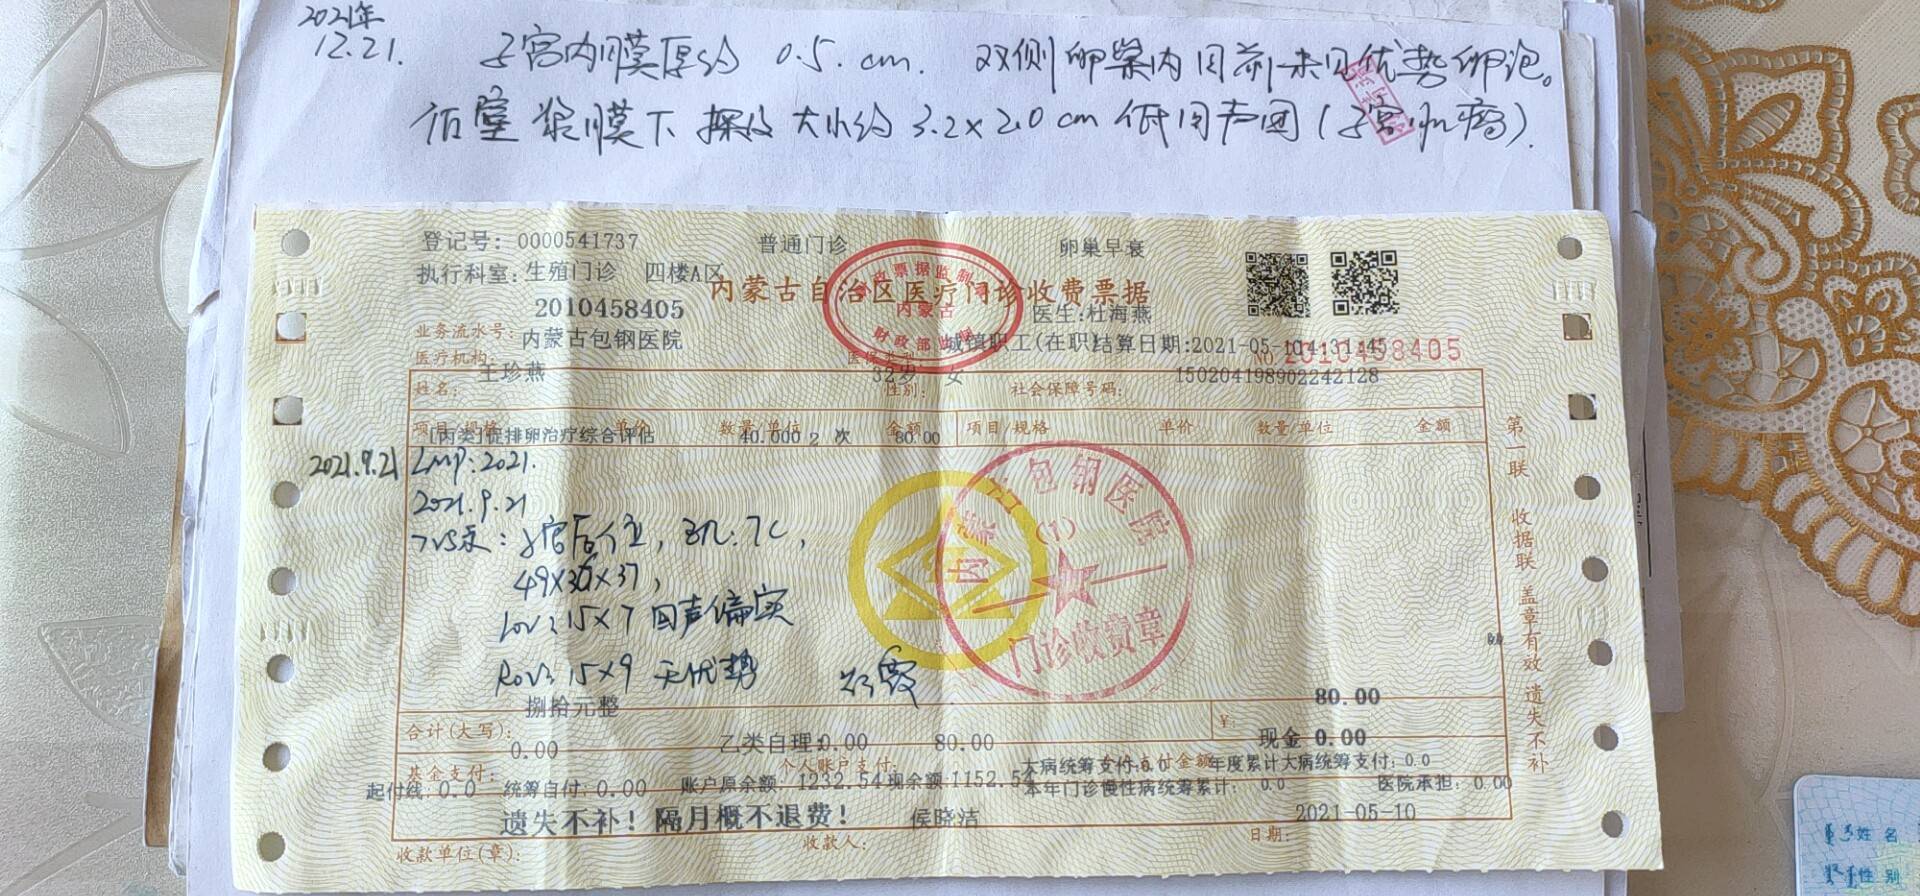 2021年
12.21. 子宫内膜厚约 0.5.cm. 双侧卵巢内目前未见优势卵泡。
后壁浆膜下探及大小约3.2×2.0cm低回声团(子宫小瘤).
登记号: 0000541737 普通门诊 卵巢早衰
执行科室:生殖门诊 四楼A区
内蒙古自治区医疗门诊收费票据
财政票据监制
内蒙古
财政部监制
2010458405 医生:杜海燕
业务流水号: 内蒙古包钢医院 城镇职工(在职)结算日期:2021-05-10
医疗机构: 医保类别
NO 2010458405
王珍燕 32岁 女 150204198902242128
姓名: 性别: 社会保障号码:
项目/规格 单价 数量/单位 金额 项目/规格 单价 数量/单位 金额
[丙类]促排卵治疗综合评估 40.000 2 次 80.00
2021.9.21 LMP:2021.
2021.9.21
TVS示:子宫后位,
49×36×37,
Lov:15×7 回声偏实
Rov:15×9 无优势
内蒙古包钢医院
(1)
门诊收费章
第一联 收据联 盖章有效 遗失不补
捌拾元整 80.00
合计(大写): ¥:
0.00 乙类自理:0.00 80.00 现金 0.00
基金支付: 个人账户支付: 大病统筹支付:0.0 年度累计大病统筹支付:0.0
起付线:0.0 统筹自付:0.00 账户原余额:1232.54现余额:1152.54 本年门诊慢性病统筹累计: 0.0 医院承担: 0.00
遗失不补! 隔月概不退费! 侯晓洁 2021-05-10
收款单位(章): 收款人: 日期:
姓名
性别